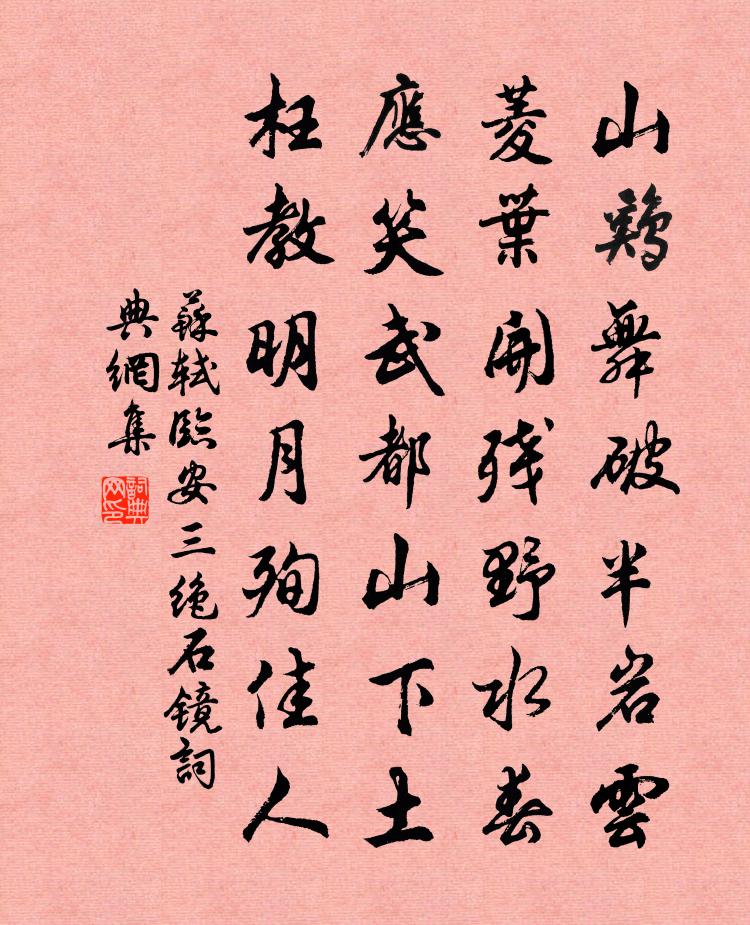 山鷄舞破半岩雲
菱葉開残野水春
應笑武都山下土
枉教明月殉佳人
蘇軾臨安三绝石鏡詞
典網集
詞典
网印